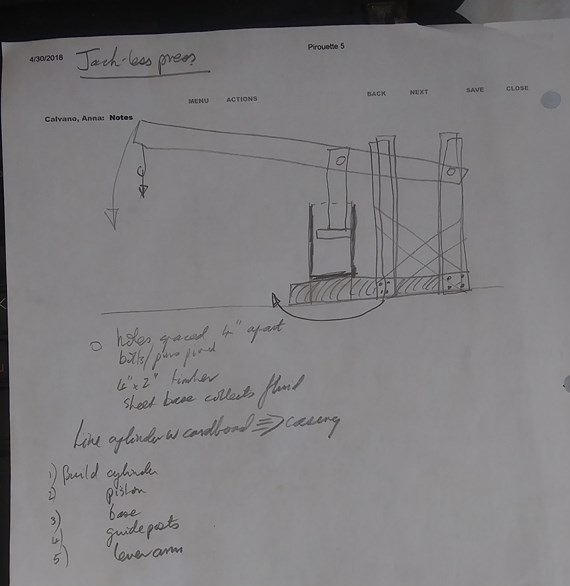 4/30/2018
Jack-less press
Pirouette 5
MENU ACTIONS BACK NEXT SAVE CLOSE
Calvano, Anna: Notes
holes spaced 4" apart
bolts/pins
4" x 2" timber
sheet base collects fluid
Line cylinder w cardboard => casing
1) Build cylinder
2) piston
3) base
4) guideposts
5) lever arm